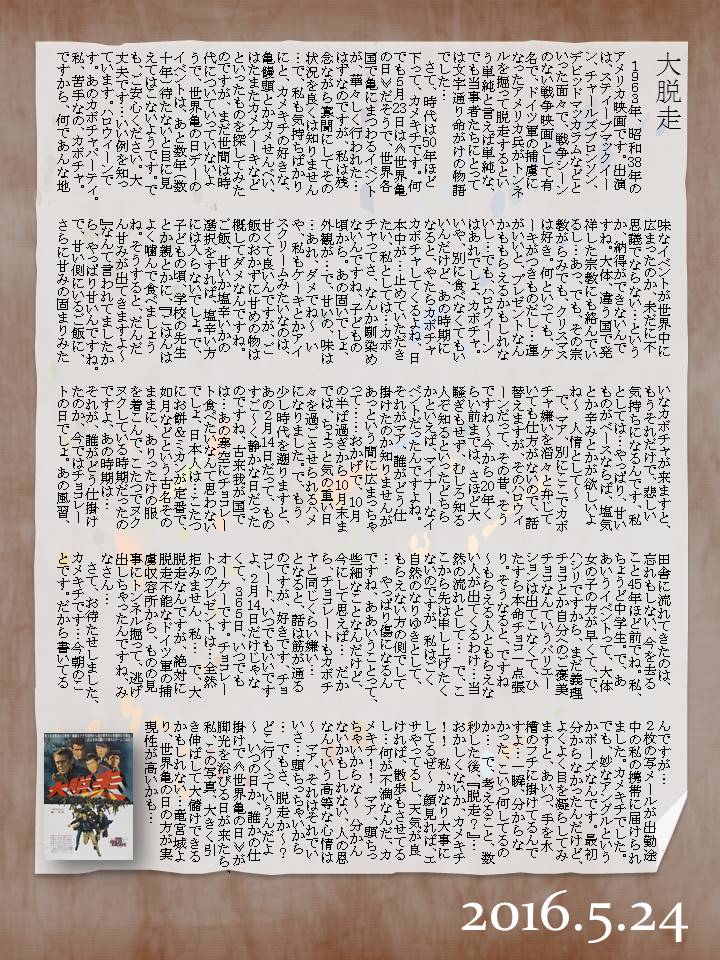 大脱走
1963年、昭和38年の
アメリカ映画です。出演
は、スティーブマックイー
ン、チャールズブロンソン、
デビッドマッカラムなどと
いった面々で、戦争シーン
のない戦争映画として有
名で、ドイツ軍の捕虜に
なったアメリカ兵がトンネ
ルを掘って脱走するとい
う単純と言えば単純な、
でも当事者たちにとって
は文字通り命がけの物語
でした…
さて、時代は50年ほど
下って、カメキチです。何
でも5月23日は≪世界亀
の日≫だそうで、世界各
国で亀にまつわるイベント
が、華々しく行われた…
はずなのですが、私は残
念ながら寡聞にしてその
状況を良くは知りません
…で、私も気持ちばかり
にと、カメキチの好きな、
亀饅頭とかカメせんべい、
はたまたカメケーキなど
といったものを探してみた
のですが、まだ世間は時
代についていっていないよ
うで、世界亀の日デーの
イベントは、あと数年〜数
十年〉待たないと目に見
えてはこないようです。で
も、ご安心ください。大
丈夫です…いい例を知っ
ています。ハロウィーンで
す。あのカボチャパーティ。
私、苦手なの、カボチャ。
ですから、何であんな地
味なイベントが世界中に
広まったのか、未だに不
思議でならない…という
か、納得ができないんで
すね。大体、違う国で発
祥した宗教にも絡んでい
るし…あっ、でも、その宗
教がらみでも、クリスマス
は好き。何といっても、ケ
ーキがつきものだし…運
がいいと、プレゼントなん
かももらえるかもしれな
い し…でも、ハロウィーン
はあれでしょ、カボチャ。
いや、別に食べなくてもい
いんだけど、あの時期に
なると、やたらカボチャ
カボチャしてくるよね、日
本中が…止めていただき
たい、私としては…カボ
チャってさ、なんか馴染め
ないんですね。子どもの
頃から。あの固いでしょ、
外観が…で、甘いの、味は
…あれ、ダメでね〜　い
や、私もケーキとかアイ
スクリームみたいなのは、
甘くて良いんですが、ご
飯のおかずに甘めの物は
概してダメなんですね。
ご飯、甘いか塩辛いかの
選択をすれば、塩辛い方
には入らないでしょ。で、
子どもの頃、学校の先生
とか親とかに『ごはんは
よく噛んで食べましょう
ね。そうすると、だんだ
ん甘みが出てきますよ〜
』なんて言われてましたか
ら、やっぱり甘いんですね。
で、甘い側にいるご飯に、
さらに甘みの固まりみた
いなカボチャが来ますと、
もうそれだけで、悲しい
気持ちになるんです、私
としては…やっぱり、甘い
ものがベースならば、塩気
とか辛みとかが欲しいよ
ね〜　人情として〜
で、マァ、別にここでカボ
チャ嫌いを滔々と弁じて
いても仕方がないので、話
替えますが、そのハロウィ
ーンだって、その昔…そう
ですね〜今から20年く
らい前までは、さほど大
騒ぎもせず、むしろ知る
人ぞ知るといったどちら
かといえば、マイナーなイ
ベントだったんですよね。
それがマァ、誰がどう仕
掛けたのか知りませんが
あっという間に広まっちゃ
って…おかげで、10月
の半ば過ぎから10月末ま
では、ちょっと気の重い日
々を過ごさせられるハメ
になりました。で、もう
少し時代を遡りますと、
あの2月14日だって、もの
すご〜く静かな日だった
のですね、古来我が国で
は…あの寒空にチョコレー
ト食べたいなんて思わない
でしょ、日本人は…こたつ
にお餅とミカンが定番で、
如月などという古名その
ままに、ありったけの服
を着こんで、こたつでヌク
ヌクしている時期だったの
ですよ、あの時期は…
それが、誰がどう仕掛け
たのか、今ではチョコレー
トの日でしょ。あの風習、
田舎に流れてきたのは、
忘れもしない、今を去る
こと45年ほど前でね。私、
ちょうど中学生。で、あ
あいうイベントって、大体
女の子の方が早くて、で、
ハシリですから、まだ義理
チョコとか自分のご褒美
チョコなんていうバリエー
ションは出てこなくて、ひ
たすら本命チョコ一点張
り。そうなると、ですね
くもらえる人ともらえな
い人が出てくるわけ…当
然の流れとして…で、こ
こから先は申し上げたく
ないのですが、私はごく
自然のなりゆきとして、
もらえない方の側でして
…やっぱり傷になるん
ですね、ああいうことって、
些細なことなんだけど。
今にして思えば…だか
ら、チョコレートもカボチ
ャと同じくらい嫌い…
となると、話は筋が通る
のですが、好きです、チョコ
レート、いつでもいいです
よ、2月14日だけじゃな
く、365日、いつでも
オッケーです。チョコレー
トのプレゼントは…全然
拒みません、私…で、大
脱走なんですが、絶対に
脱走不能なドイツ軍の捕
虜収容所から、ものの見
事にトンネル掘って、逃げ
出しちゃったんですね、み
なさん…
さて、お待たせしました、
カメキチです…今朝のこ
とです。だから書いてる
んですが…
2枚の写メールが出勤途
中の私の携帯に届けられ
ました。カメキチでした。
でも、妙なアングルという
かポーズなんです。最初
分からなかったんだけど、
よくよく目を凝らしてみ
ますと、あいつ、手を水
槽のフチに掛けてるんで
すよ…一瞬、分からな
かった、こいつ何してるの
か…で、考えること、数
秒した後、『脱走？』…
おかしくないか、カメキチ
！！　私、かなり大事に
してるぜ〜　顔見れば、エ
サやってるし、天気が良
ければ、散歩もさせてる
し…何が不満なんだ、カ
メキチ！！　マァ、頸っち
ちゃいからな〜　分かん
ないかもしれない、人の思
なんていう高等な心情は
いさ…頸っちゃいから
…でもさ、脱走か〜？
どこ行くっていうんだよ
〜　いつの日か、誰かの仕
掛けで≪世界亀の日≫が
脚光を浴びる日が来たら、
私、この写真、大きく引
き伸ばして大儲けできる
かもしれない…竜宮城よ
り、世界亀の日の方が実
現性が高いかも…
大脱走
2016.5.24